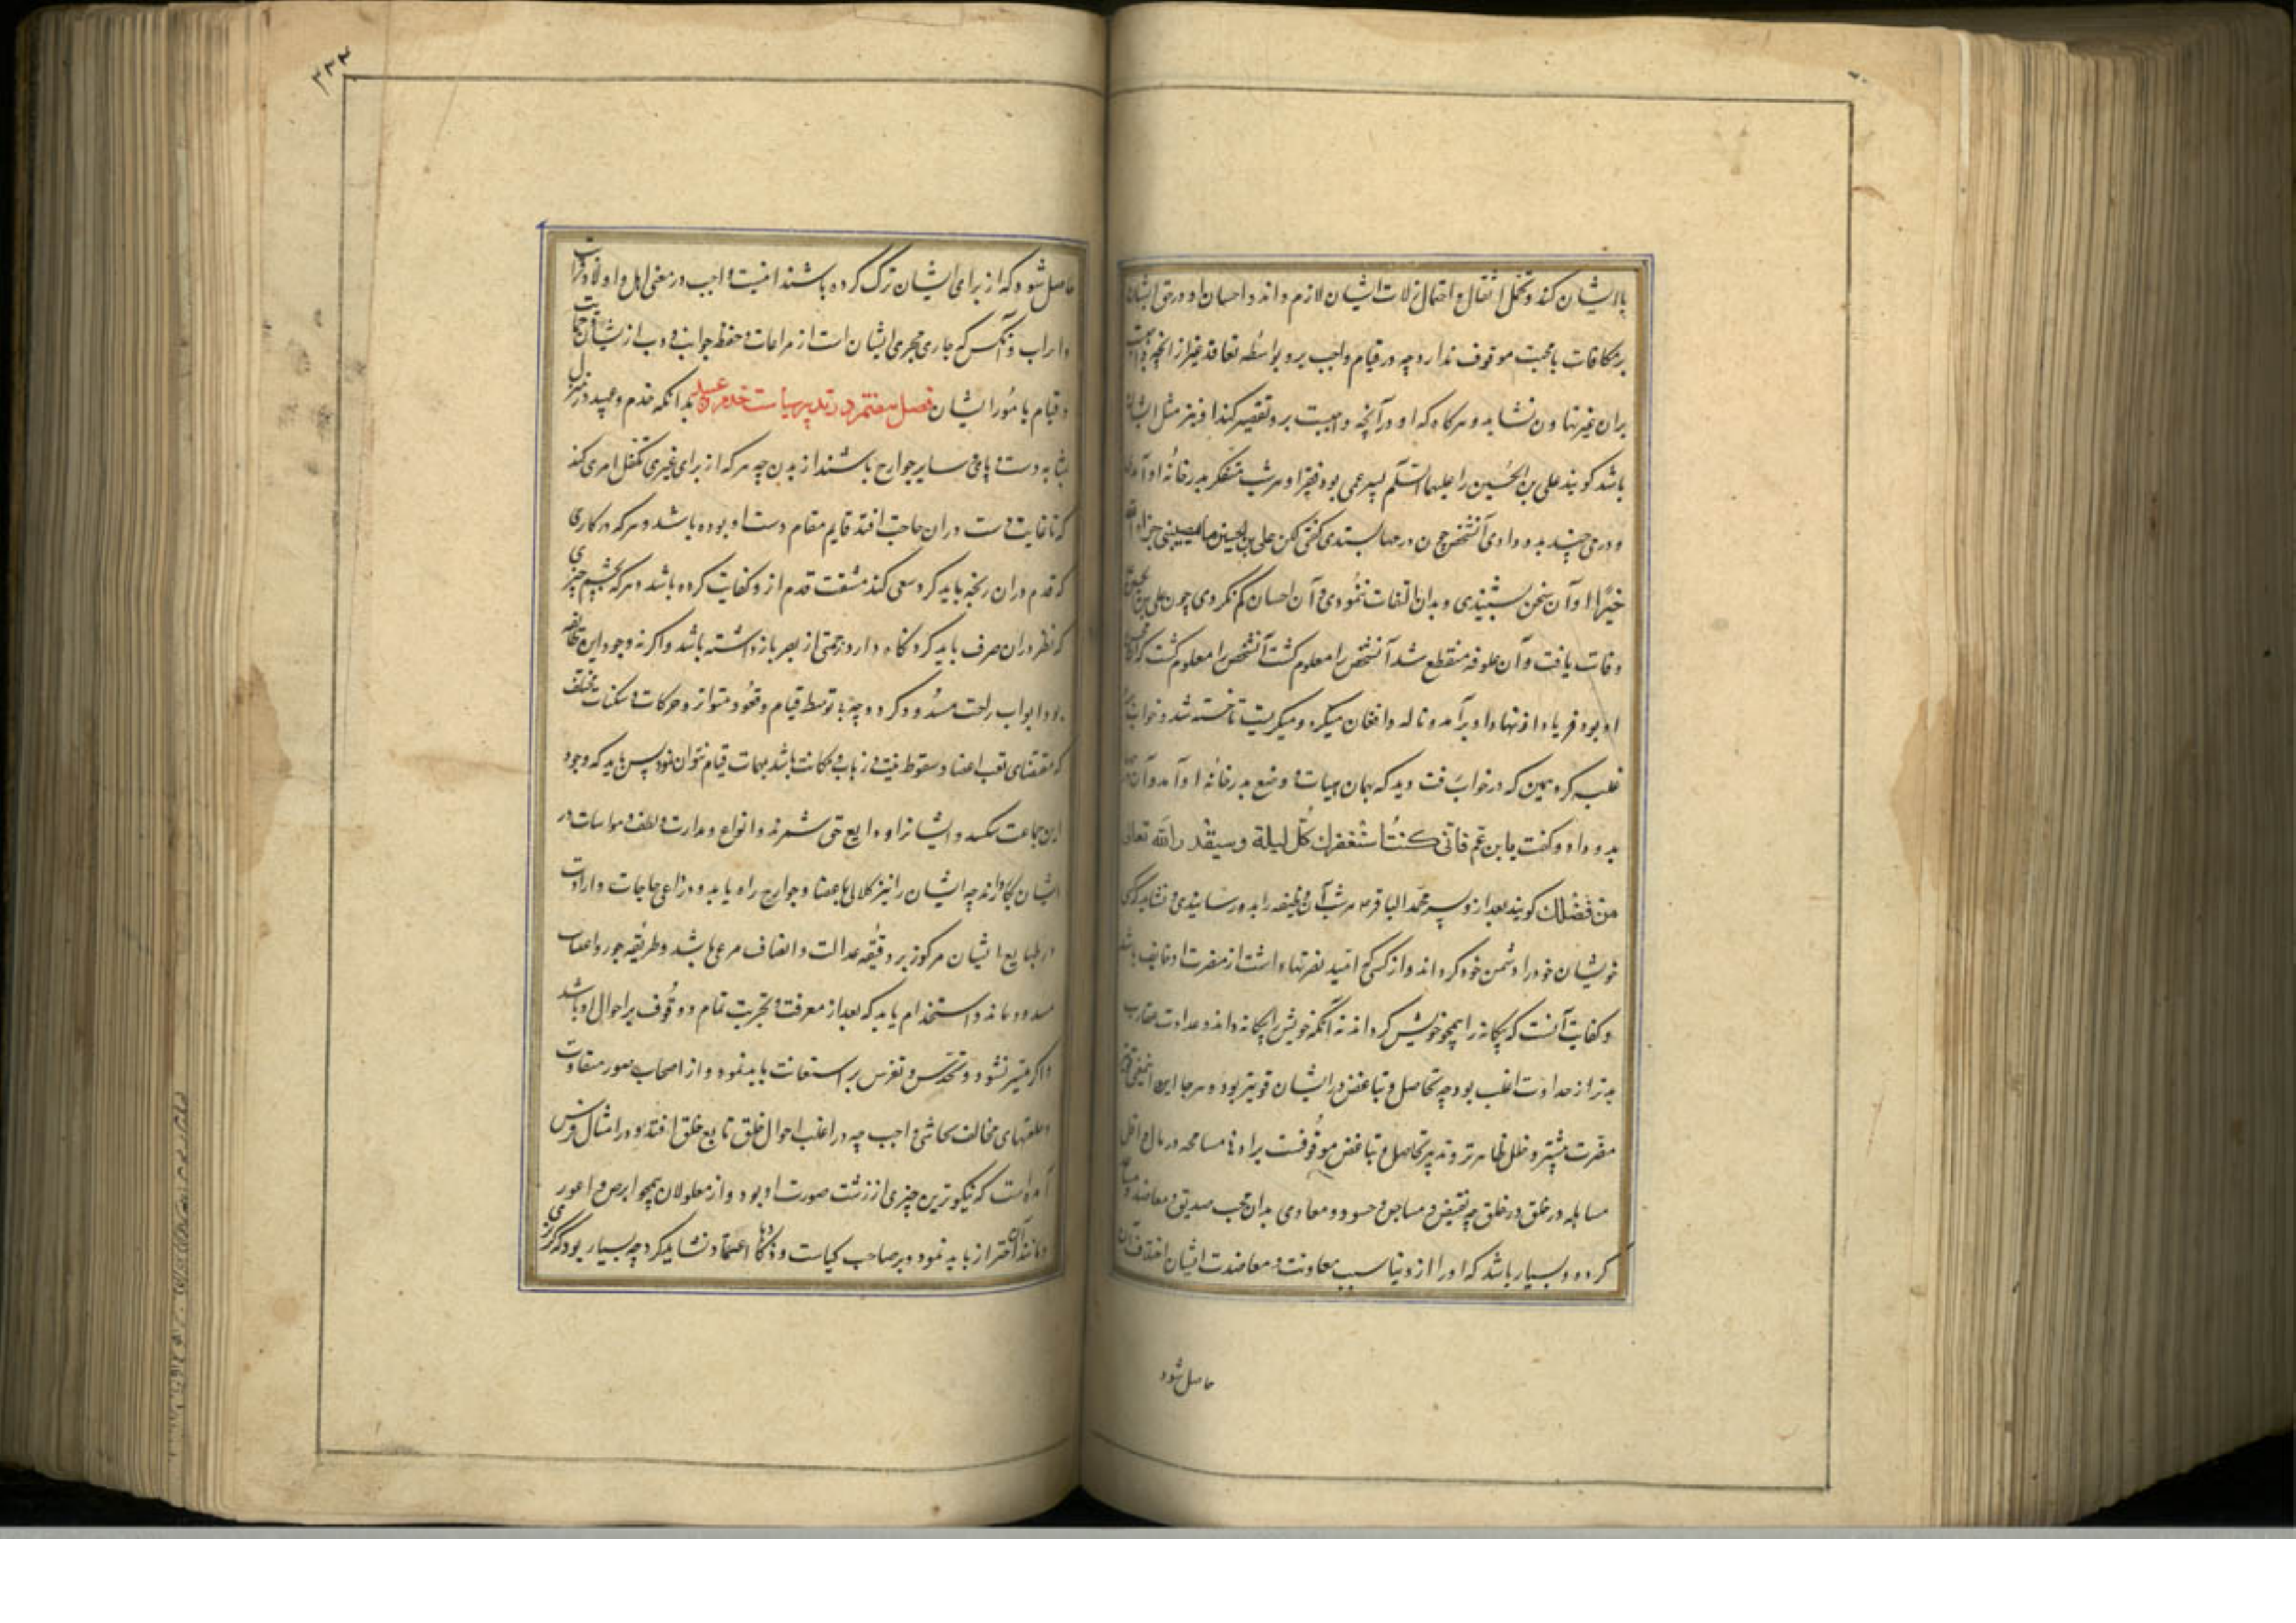 باایشان کند و تحمل اثقال و احتمال زلات ایشان لازم داند و احسان او در حق ایشان
بر مکافات یا محبت موقوف ندارد چه در قیام واجب برو بواسطه تعاقد غیر از آنچه واجبست
بران غیر تهاون نشاید و هرگاه که او در آنچه واجبست برو تقصیر کند او نیز مثل ایشان
باشد کویند علی بن الحسین را علیهما السلم پسر عمی بود فقیر او هر شب متنکر بدر خانه او آمدی
و درمی چند بدو دادی آنشخص چون درمها بستدی کفتی لکن علی بن الحسین ما یصیبنی جزاه الله
خیرا او آن سخن بشنیدی و بدان التفات ننمودی و آن احسان کم نکردی چون علی بن الحسین
وفات یافت و آن علوفه منقطع شد آنشخص را معلوم کشت آنشخص را معلوم کشت که آن
او بود فریاد از نهاد او برآمد و ناله و افغان میکرد و میکریست تا خسته شد و خواب برو
غلبه کرد همین که در خواب رفت دید که بهمان هیات و وضع بدر خانه او آمد و آن
بدو داد و کفت یا بن عم فانی کنت استغفر لك کل لیلة وسیقد ر الله تعالی
من فضلك کویند بعد ازو پسر محمد الباقر هر شب آن وظیفه را بدو رسانیدی و نشاید که کسی
خویشان خود را دشمن خود کرداند و از کسی که امید نصرتها داشت از مضرت او خایف باشد
و کفایت آنست که بیکانه را همچو خویش کرداند نه آنکه خویش را بیکانه داند و عداوت اقارب
بدتر از عداوت اغلب بود چه تحاصل و تباغض در ایشان قویتر بود و هر جا این معنی
مضرت بیشتر و خلل ظاهر تر و تدبیر تحاصل و تباغض موقوفست بر اد مسامحه در مال و اهل
مساهله در خلق در خلق چه نقیض و مساجل و حسود و معادی بدان محب صدیق و معاضد
کردد و بسیار باشد که او را از دنیا سبب معاونت و معاضدت ایشان
حاصل شود
۲۳۴
حاصل شود که از برای ایشان ترک کرده باشند اینست واجب در معنی اهل و اولاد و قرابات
و ارباب و آنکس که جاری مجری ایشان است از مراعات و حفظ جوانب و ذب از ایشان حمایت
و قیام بامور ایشان فصل هفتم در تدبیر سیاست خدم و عبید بدانکه خدم و عبید در منزل
بمثابه دست و پای و سایر جوارح باشند از بدن چه هر که از برای غیری تکفل امری کند
که تا غایت دست دران حاجت افتد قایم مقام دست او بوده باشد و هر که در کاری
که قدم دران رنجه باید کرد سعی کند مشقت قدم ازو کفایت کرده باشد و هر که بچشم چیزی
که نظر دران صرف باید کرد نکاه دارد زحمتی از بصر باز داشته باشد و اکر نه وجود این طایفه
بود ابواب راحت مسدود کردد چه بی توسط قیام و قعود متواتر و حرکات و سکنات مختلف
که مقتضای تعب اعضا و سقوط هیبت و زهاب مکانت باشد بمهمات قیام نتوان نمود پس باید که وجود
این جماعت و ایشانرا ودایع حق شمرند و انواع و مدارت و لطف و مواسات در
ایشان بکار دارند چه ایشان را نیز کلال باعضا و جوارح راه یابد و دواعی حاجات و ارادت
در طبایع ایشان مرکوز بود دقیقه عدالت و انصاف مرعی باشد و طریقه جور و اعتساف
مسدود ماند و استخدام باید که بعد از معرفت و تجربت تمام و وقوف بر احوال او باشد
و اکر متیسر نشود و تحدس و تفرس بر استعانت باید نمود و از اصحاب صور متفاوت
و خلقتهای مخالف تحاشی واجب چه در اغلب احوال خلق تابع خلق افتد و در امثال فرس
آمده است که نیکوترین چیزی از زشت صورت او بود و از معلولان همچو ابرص و اعور
و مانند آن احتراز باید نمود و بر صاحب کیاست و دهاء اعتماد نشاید کرد چه بسیار بود که کربزی